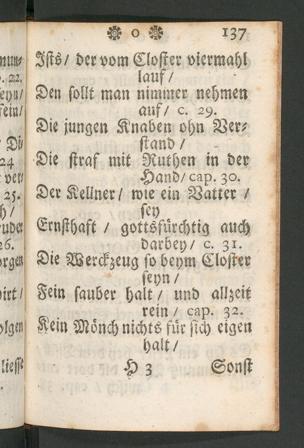 o 137
Ists / der vom Closter viermahl
lauf /
Den sollt man nimmer nehmen
auf / c. 29.
Die jungen Knaben ohn Ver-
stand /
Die straf mit Ruthen in der
Hand / cap. 30.
Der Kellner / wie ein Vatter /
sey
Ernsthaft / gottsfürchtig auch
darbey / c. 31.
Die Werckzeug so beym Closter
seyn /
Fein sauber halt / und allzeit
rein / cap. 32.
Kein Mönch nichts für sich eigen
halt /
H 3 Sonst